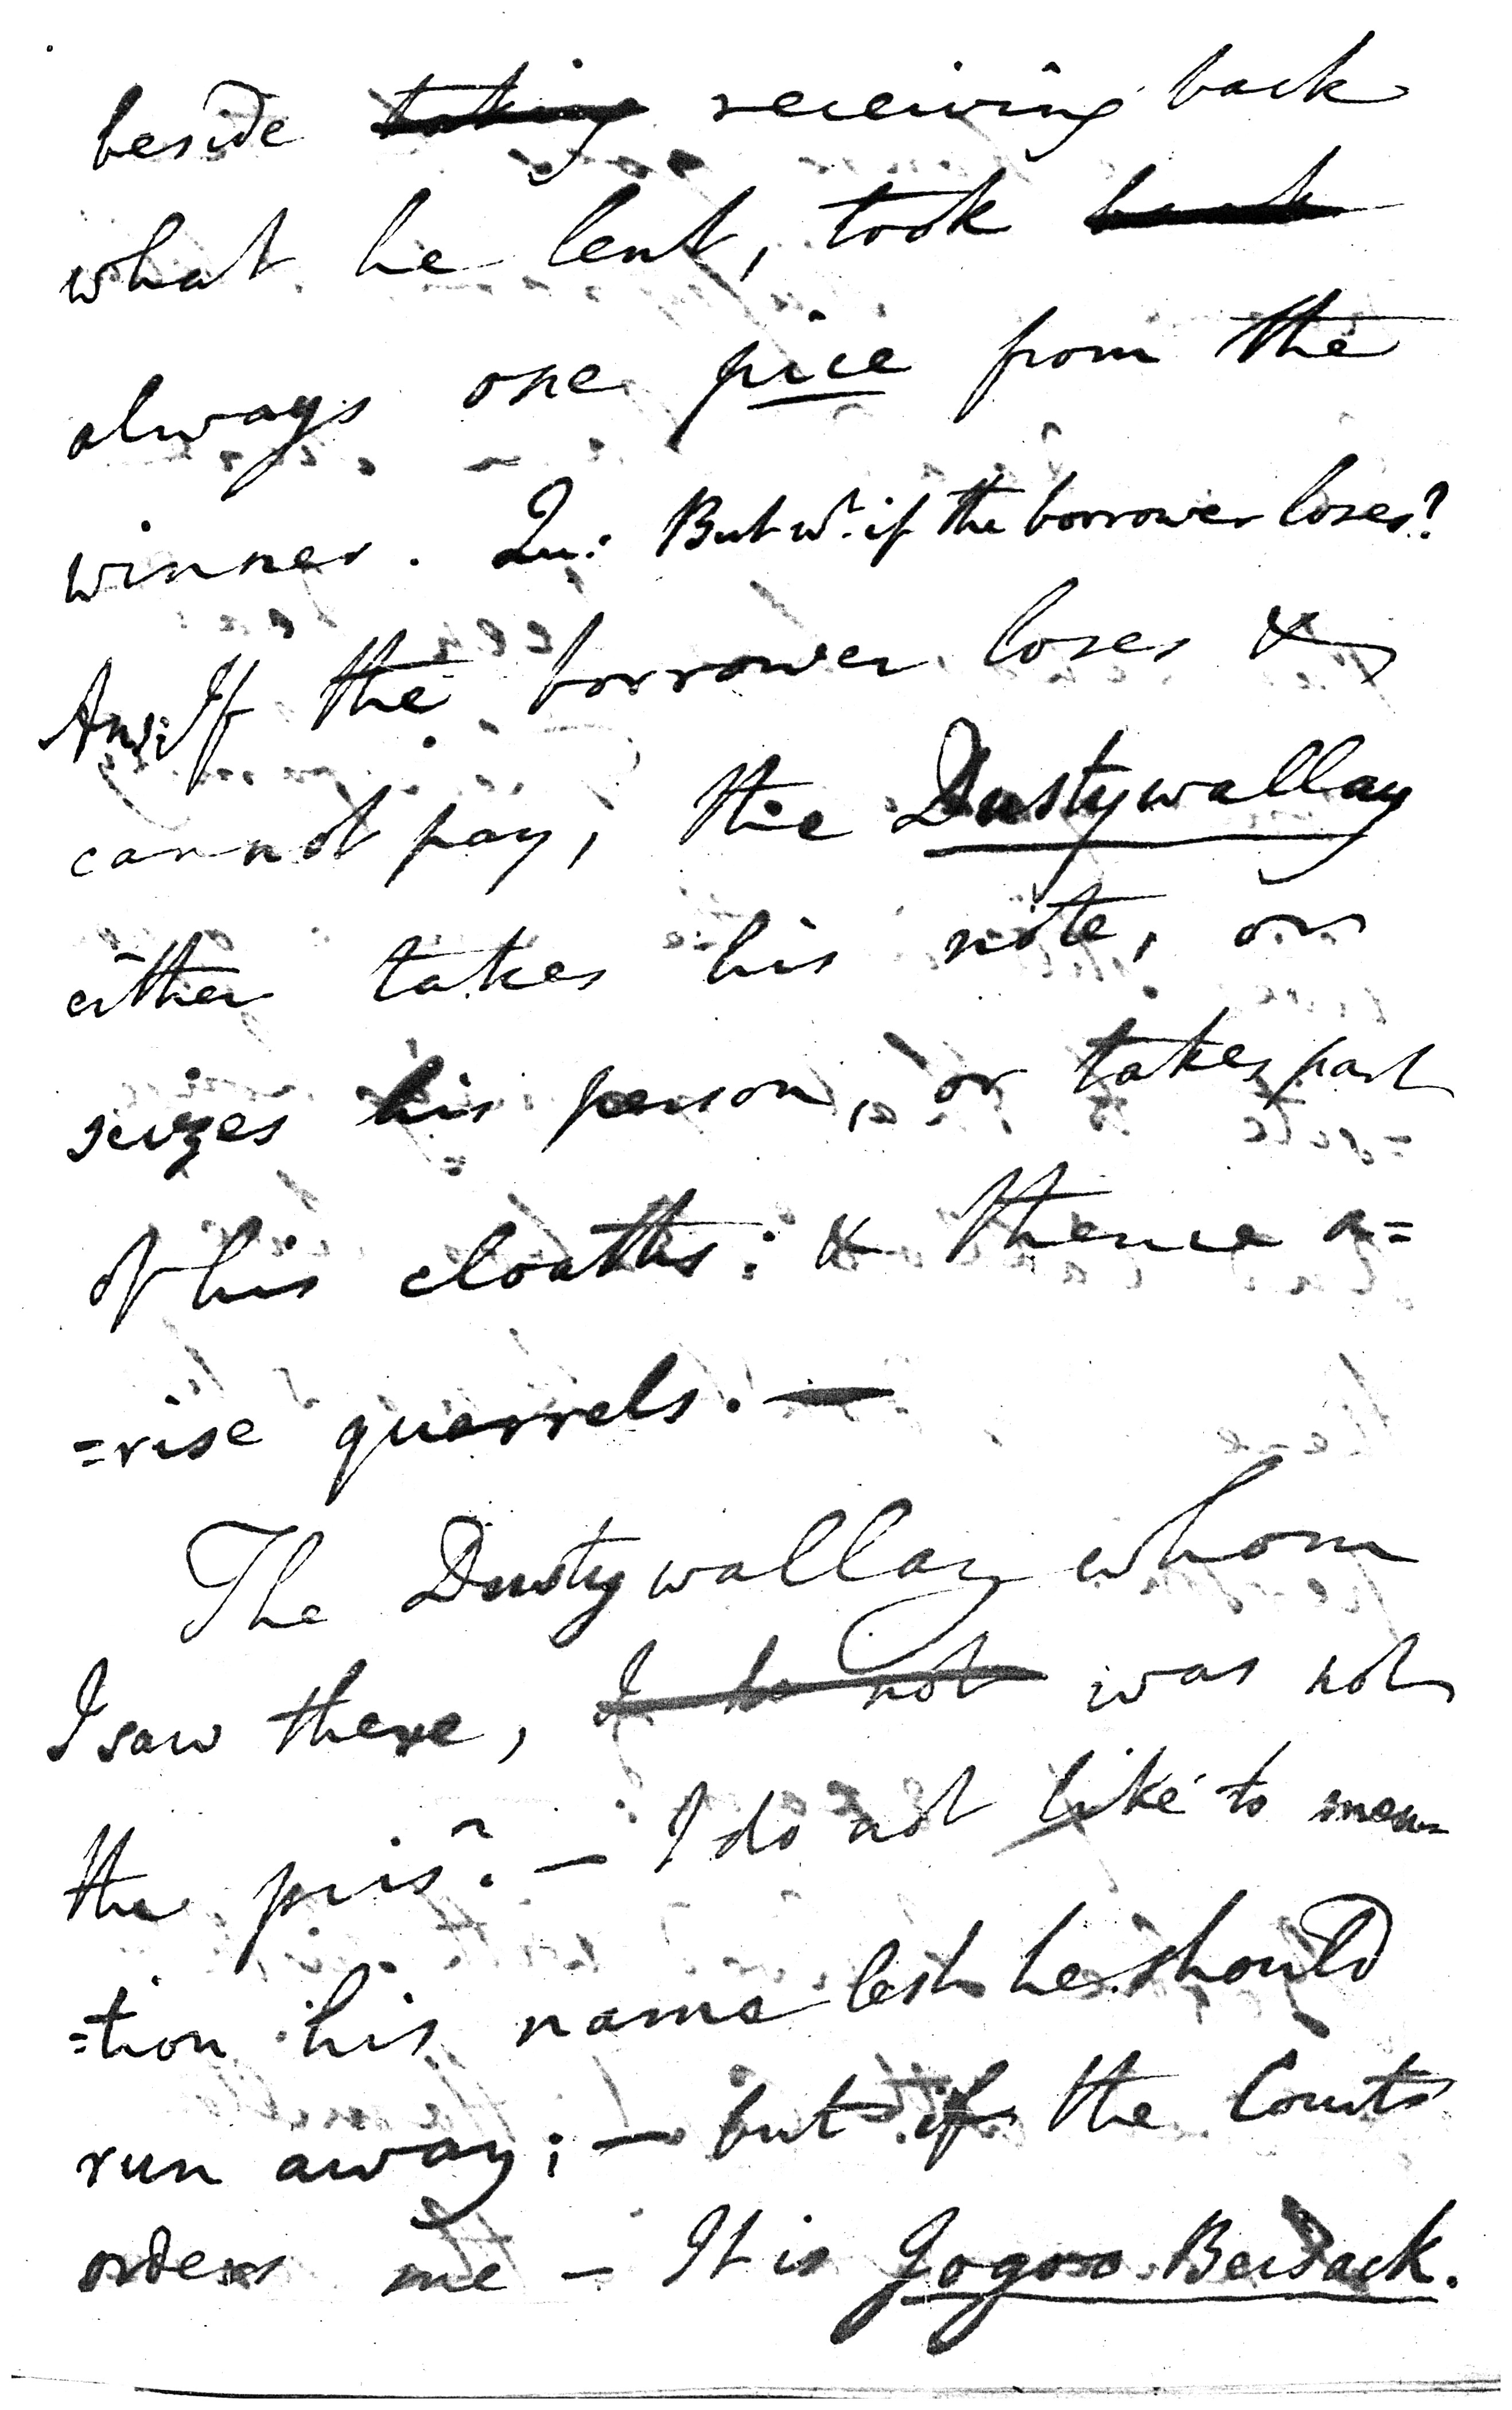 beside taking receiving back
what he lent, took back
always one pice from the
winner. Qu: But wt. if the borrower loses?
Ans: If the borrower loses &
cannot pay, the Dustywallay
either takes his note, or
seizes his person, or takes part
of his cloaths: & thence a=
=rise quarrels. —
The Dustywallay whom
I saw there, was not
the pris.r — I do not like to men=
=tion his name lest he should
run away; — but if the Court
orders me — It is Jogoo Bersack.